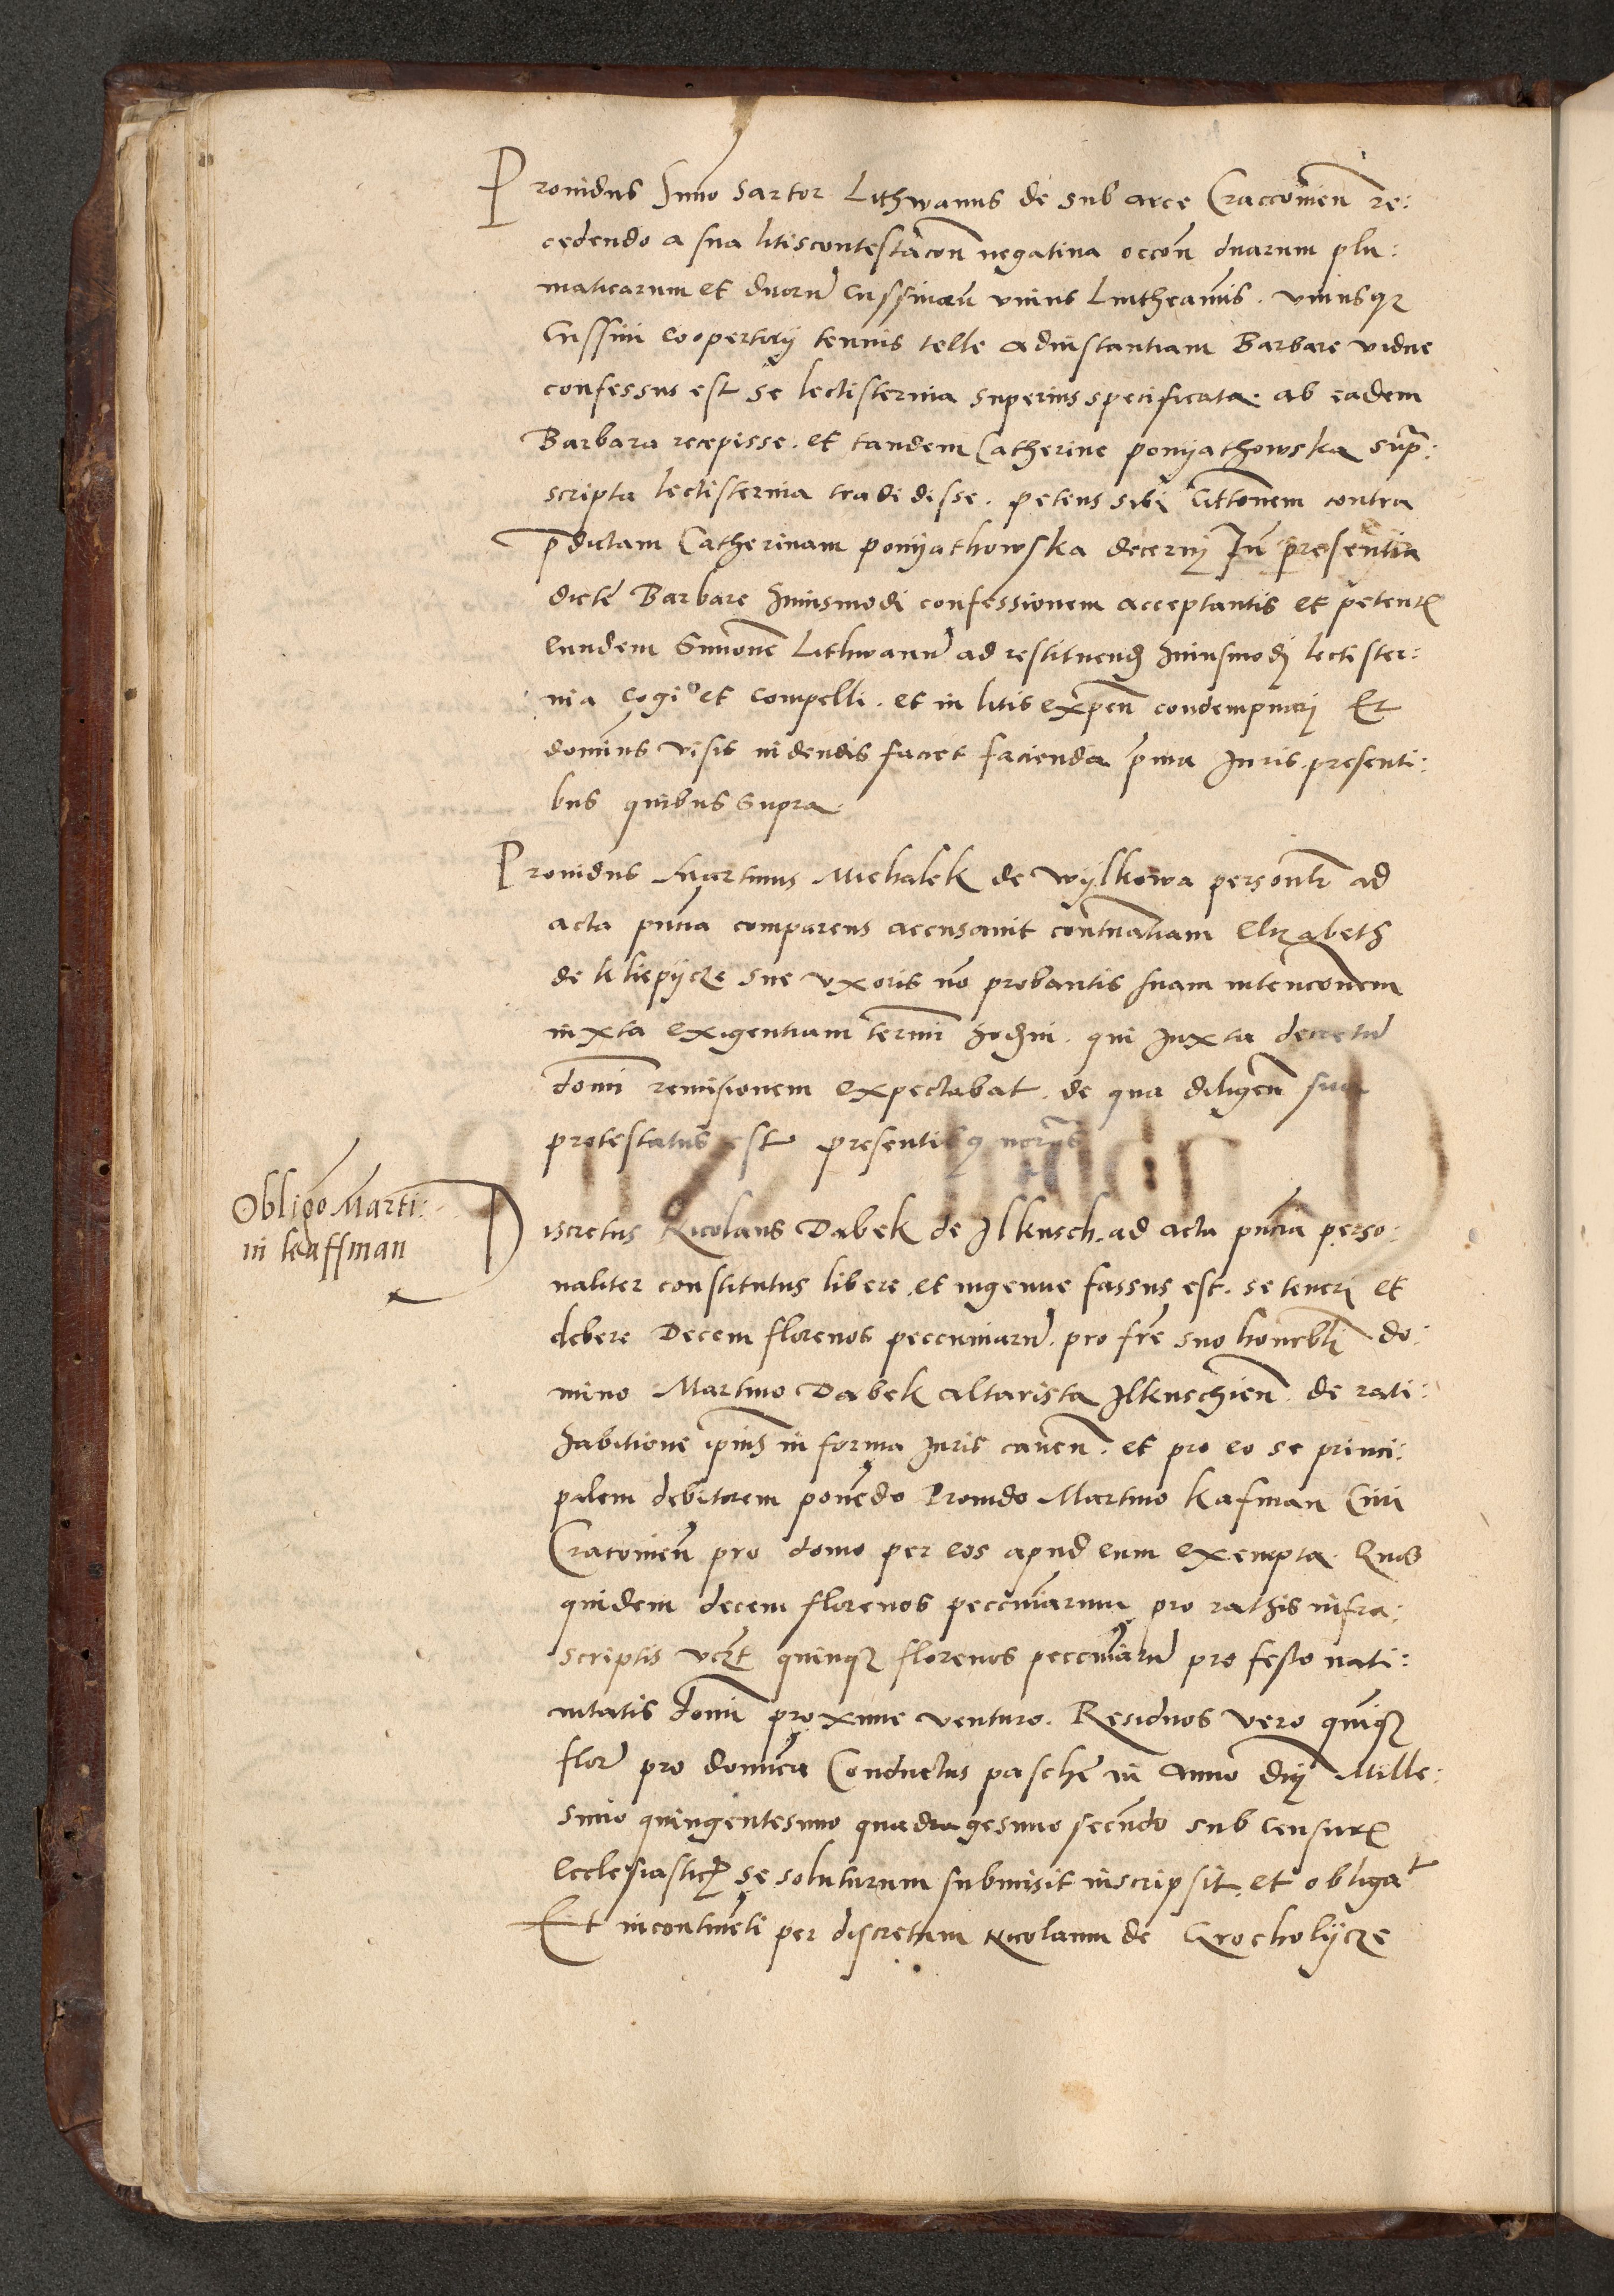 Prouidus Simo Sartor Lithwanus de sub arce Craccouien̄ re:
cedendo a sua litiscontestac̄on negatiua occōn duarum plu:
maticarum et duorū Cussinorū vnius Lintheaminis. vniusq3
Cussini coopertorij tenuis telle adinstantiam Barbare vidue
confessus est se lectisternia superius specificata ab eadem
Barbara recepisse. et tandem Catherine ponyathowska sup̄:
scripta lectisternia tradidisse. petens sibi Citt̄onem contra
p̄dictam Catherinam ponyathowska decernj In presentia
dicte Barbare huiusmodi confessionem acceptantis et petent̄
eundem Simonē Lithwanū ad restituend huiusmodj lectister:
nia cogi et compelli. et in litis expen̄ condempnarj Et
dominus visis videndis faciet facienda p̄ma Juris. presenti:
bus quibus supra.
Prouidus Martinus Michalek de Wylkowa personl̄r ad
acta pn̄tia comparens accusauit contuatiam Elizabeth
de kliepycze sue vxoris nō probantis suam intenc̄onem
iuxta exigentiam term̄i hodj̄ni. qui Juxta decretū
domī remisionem expectabat. de qua diligen̄ sua
protestatus est presentib9
Obligō Marti:
ni kaffman
Discretus Nicolaus Dabek de Jlkusch. ad acta pn̄tia perso:
naliter constitutus libere. et ingenue fassus est. se teneri et
debere Decem florenos peccuniarū. pro fr̄e suo honrbl̄j do:
mino Martino Dabek altarista Jlkuschien̄. de rati:
habitione ip̄ius in forma Juris cauen̄. et pro eo se princi:
palem debitorem ponēdo Prouido Martino kafman Ciui
Cracouien̄ pro domo per eos apud eum exempta. Quos
quidem decem florenos peccuniarum pro rathis infra:
scriptis vcz̄t quinq3 florenos peccuniarū pro festo nati:
uitatis domī proxime venturo. Residuos vero quiq̄3
flor̄ pro domīca Conductus paschē in anno dnj̄ Mille:
simo quingentesimo quadragesimo secūdo sub censuris
ecclesiasticis se soluturum submisit inscripsit. et obligat
Et incontinēti per discretum Nicolaum de Grocholycze